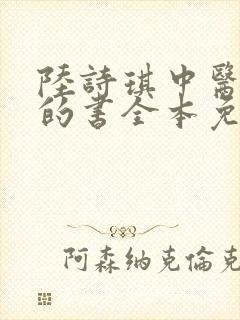 陸詩琪中醫
的書全本免
阿森纳克倫克